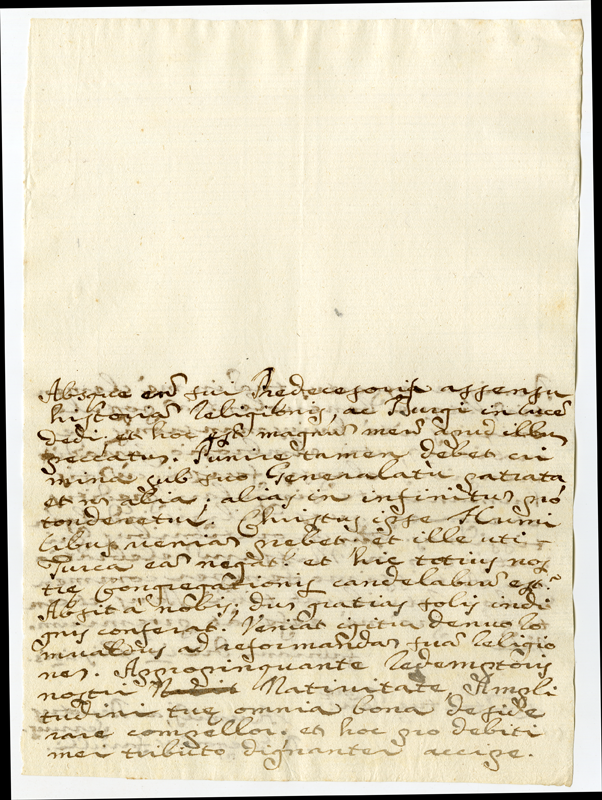 Absque eni sui Predecessoris assensu
historia Religionis, ac Burgi in lucē
dedi. et hoc est magnū meū apud illū
peccatū. Punire tamen debet cri
mina sub suo Generalatu patrata
et nō alia. alias in infinitus pro
tonderetur. Christus ipse Humi
libus veniā prebet et ille uti
Turca eā negat. et hic totius nos
tre Congregationis candelabrū est?
Absit a nobis, dū gratias solis indi
gnis conferat. Veniat igitur denuo Ro
mualdus ad reformandā suā religio
nem. Appropinquante Redemptoris
nostri Nativitate, Ampli
tudini tue omnia bona deside
rare compellor. et hoc pro debiti
mei tributo dignanter accipe.